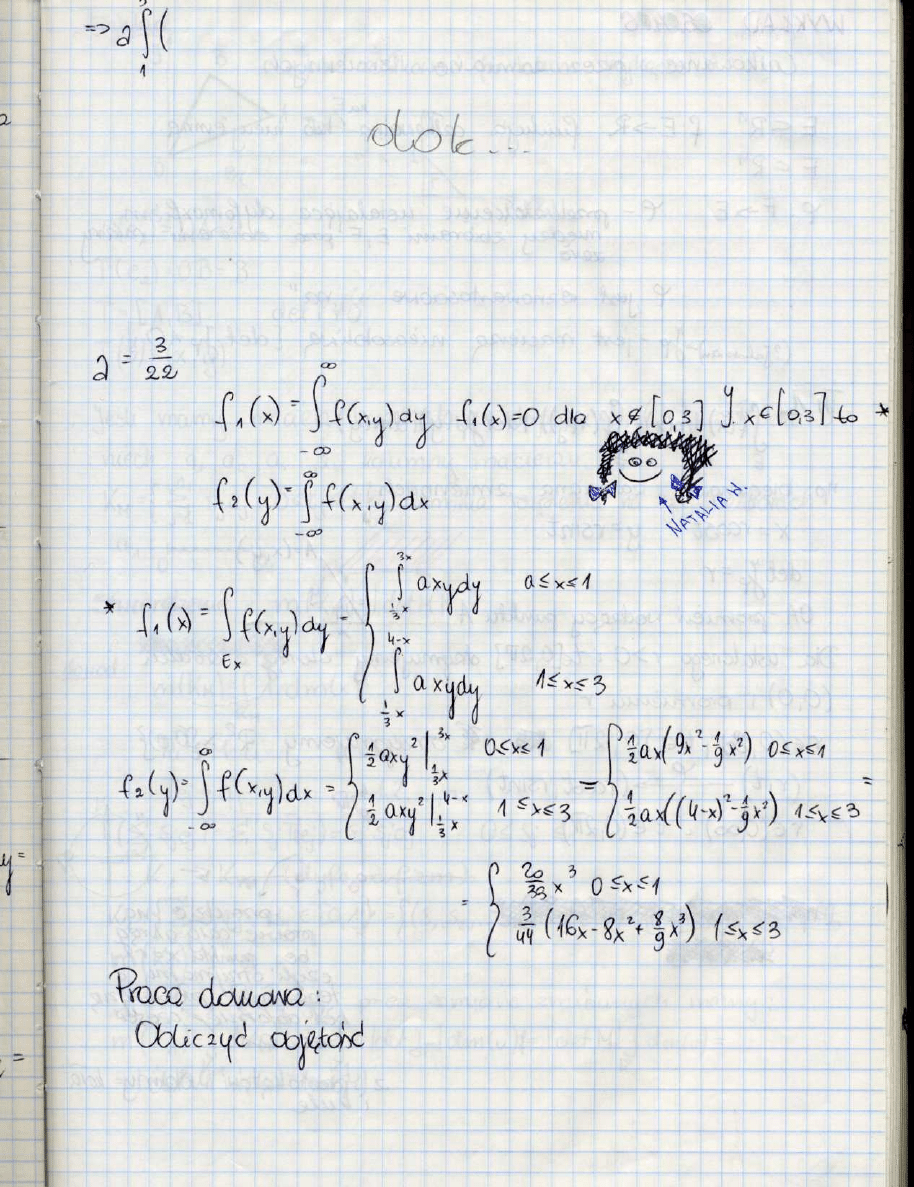 => a ∫₁³ (
otok...
a = 3/22
f₁(x) = ∫_{-∞}^{∞} f(x,y) dy f₁(x)=0 dla x ∉ [0,3] y. x∈[0,3] to *
f₂(y) = ∫_{-∞}^{∞} f(x,y) dx
NATALIA W.
* f₁(x) = ∫_{Ex} f(x,y) dy = { ∫_{1/3 x}^{3x} axy dy a≤x≤1
∫_{1/3 x}^{4-x} axy dy 1≤x≤3
f₂(y) = ∫_{-∞}^{∞} f(x,y) dx = { 1/2 axy² |_{1/3 x}^{3x} 0≤x≤1 = { 1/2 ax(9x² - 1/9 x²) 0≤x≤1 =
1/2 axy² |_{1/3 x}^{4-x} 1≤x≤3 1/2 ax((4-x)² - 1/9 x²) 1≤x≤3
= { 20/33 x³ 0≤x≤1
3/44 (16x - 8x² + 8/9 x³) 1≤x≤3
Praca domowa:
Obliczyć objętość